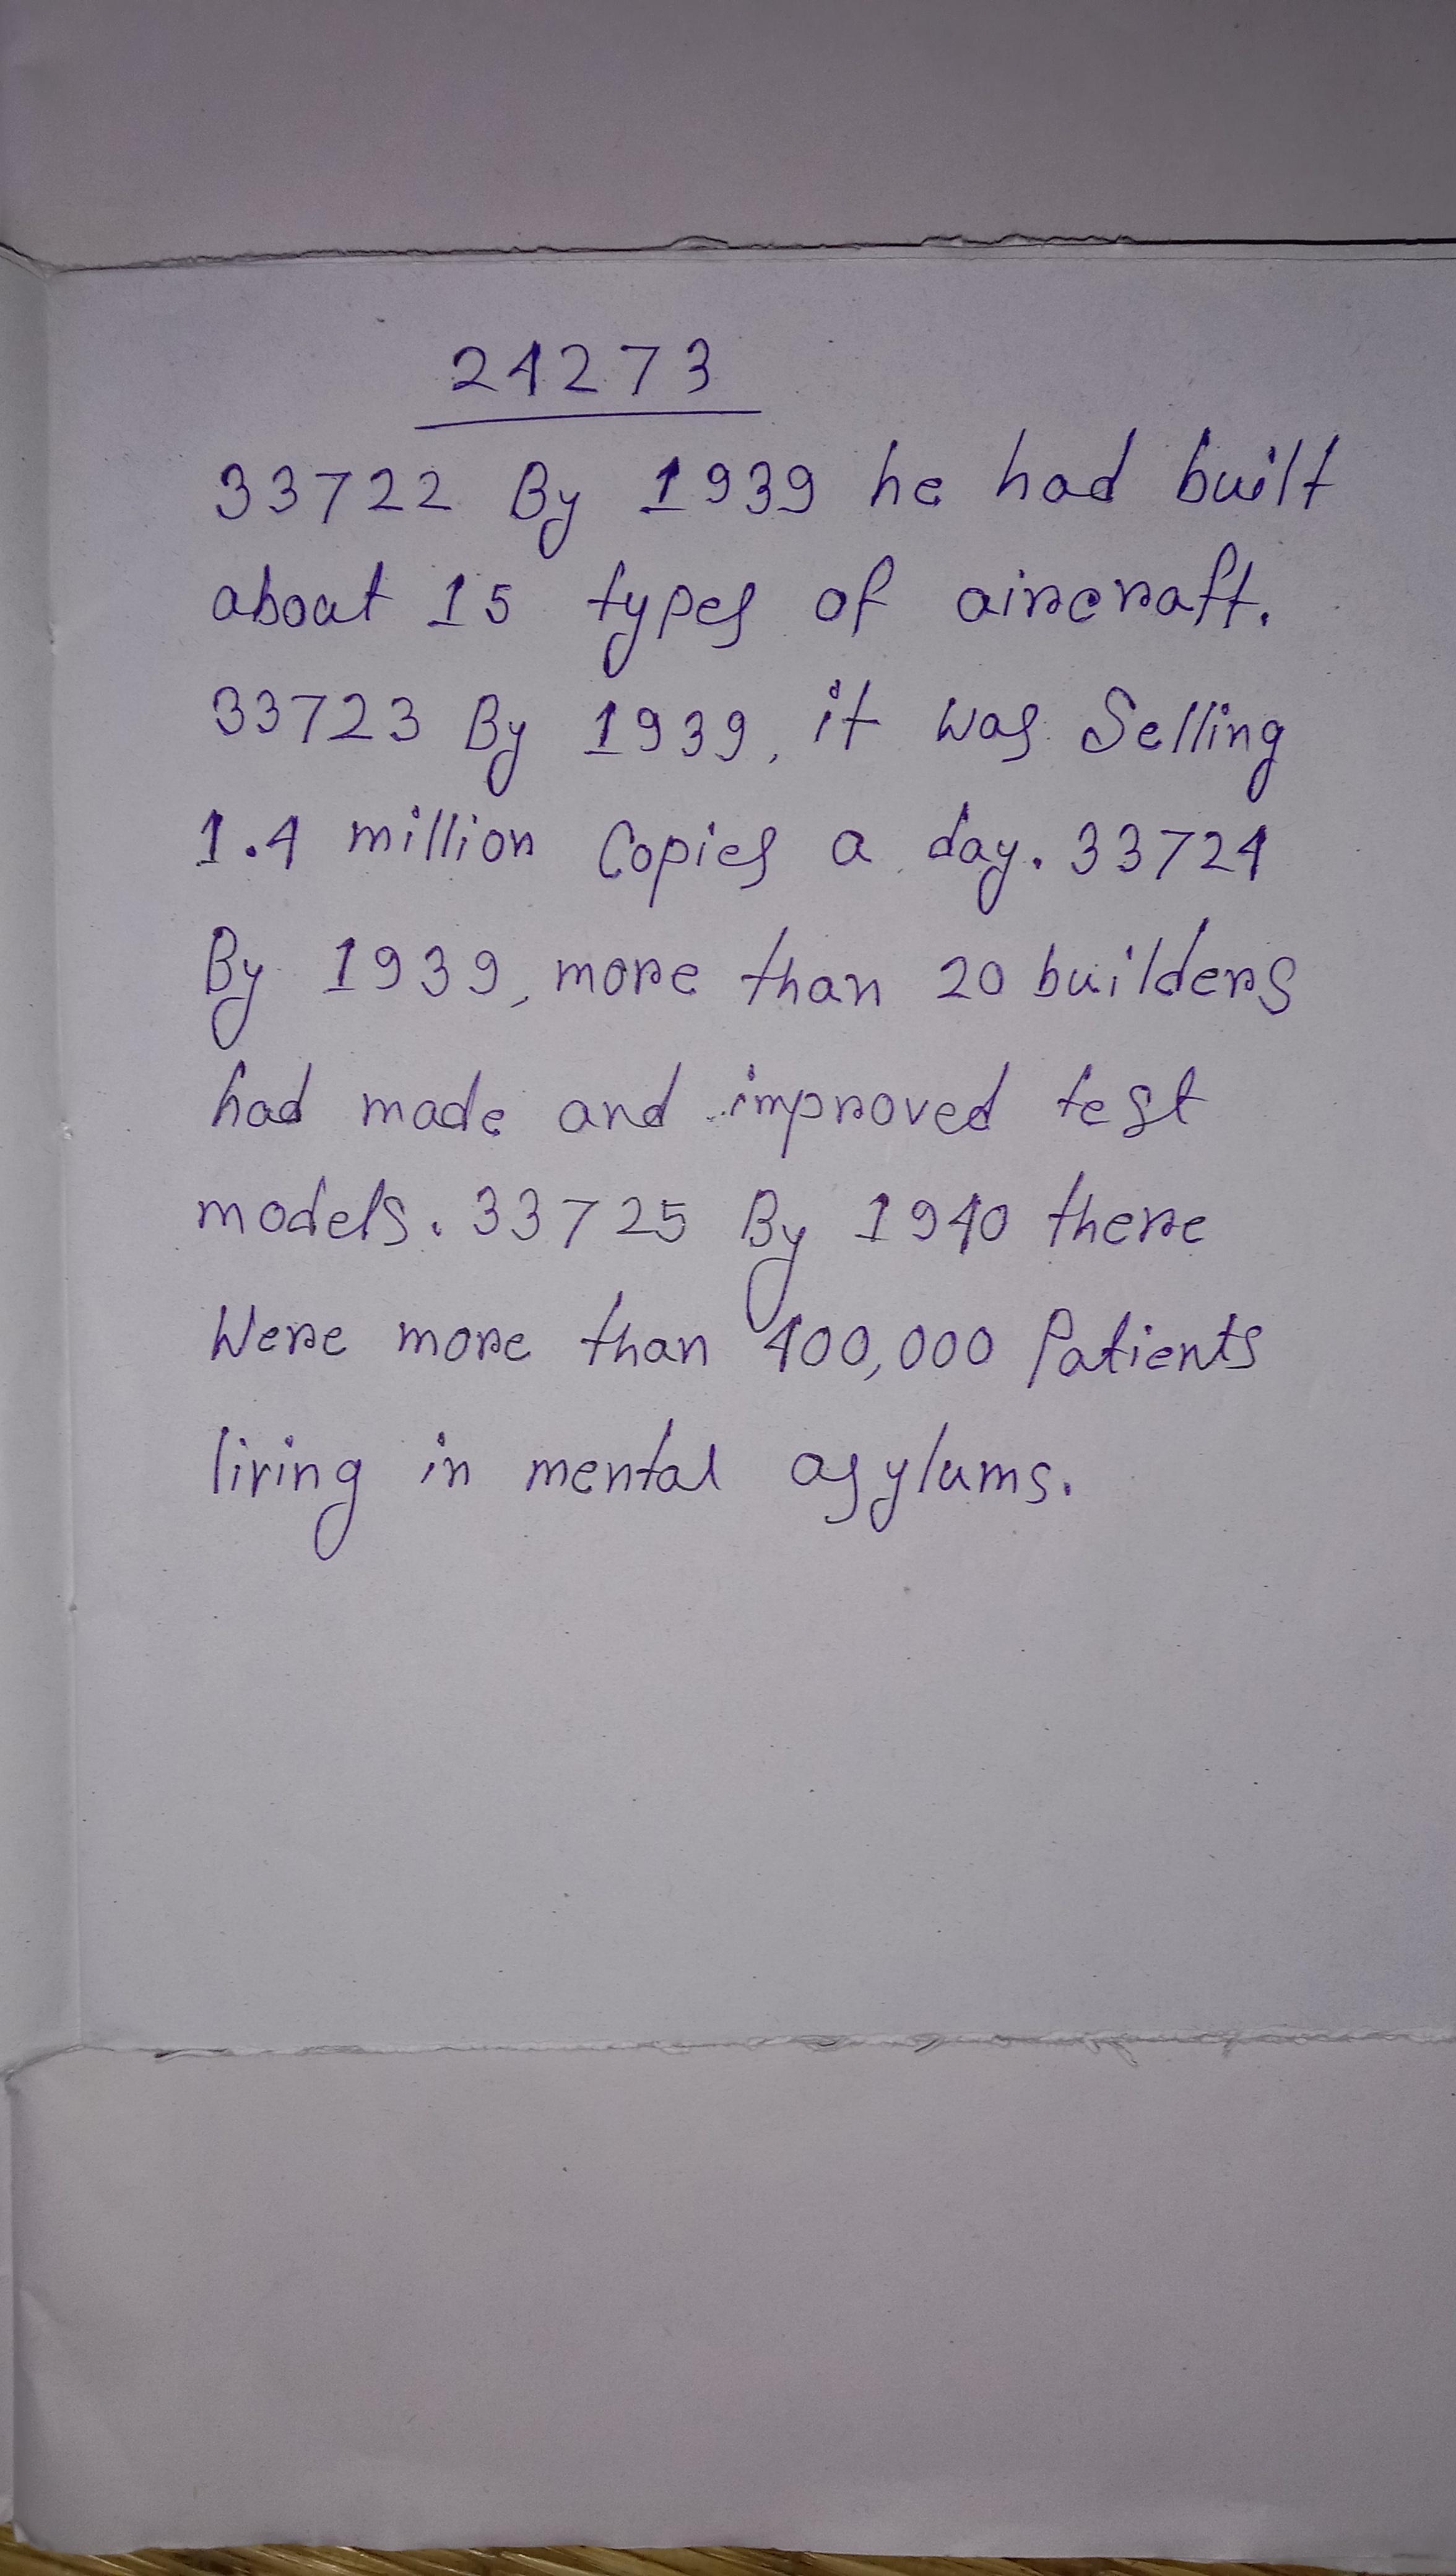 24273
33722 By 1939 he had built
about 15 types of aircraft.
33723 By 1939, it was Selling
1.4 million Copies a day. 33724
By 1939, more than 20 builders
had made and improved test
models. 33725 By 1940 there
Were more than 400,000 Patients
living in mental asylums.